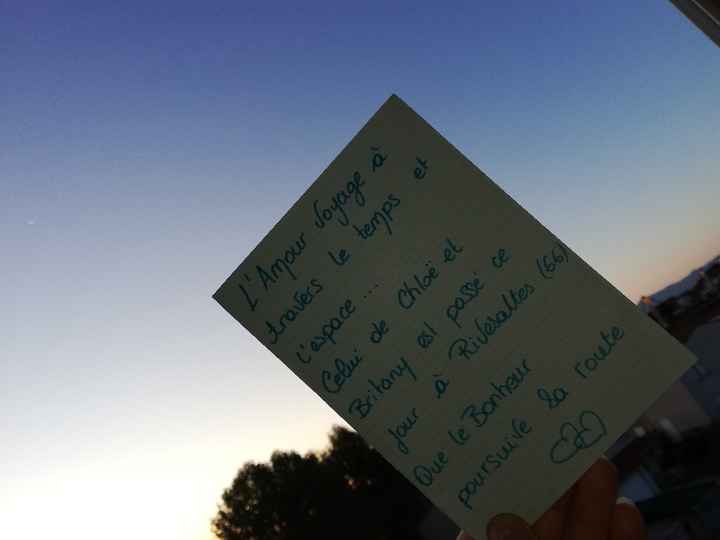 L'Amour voyage à
travers le temps et
l'espace ...
Celui de Chloë et
Britany est passé ce
jour à Rivesaltes (66)
Que le Bonheur
poursuive sa route